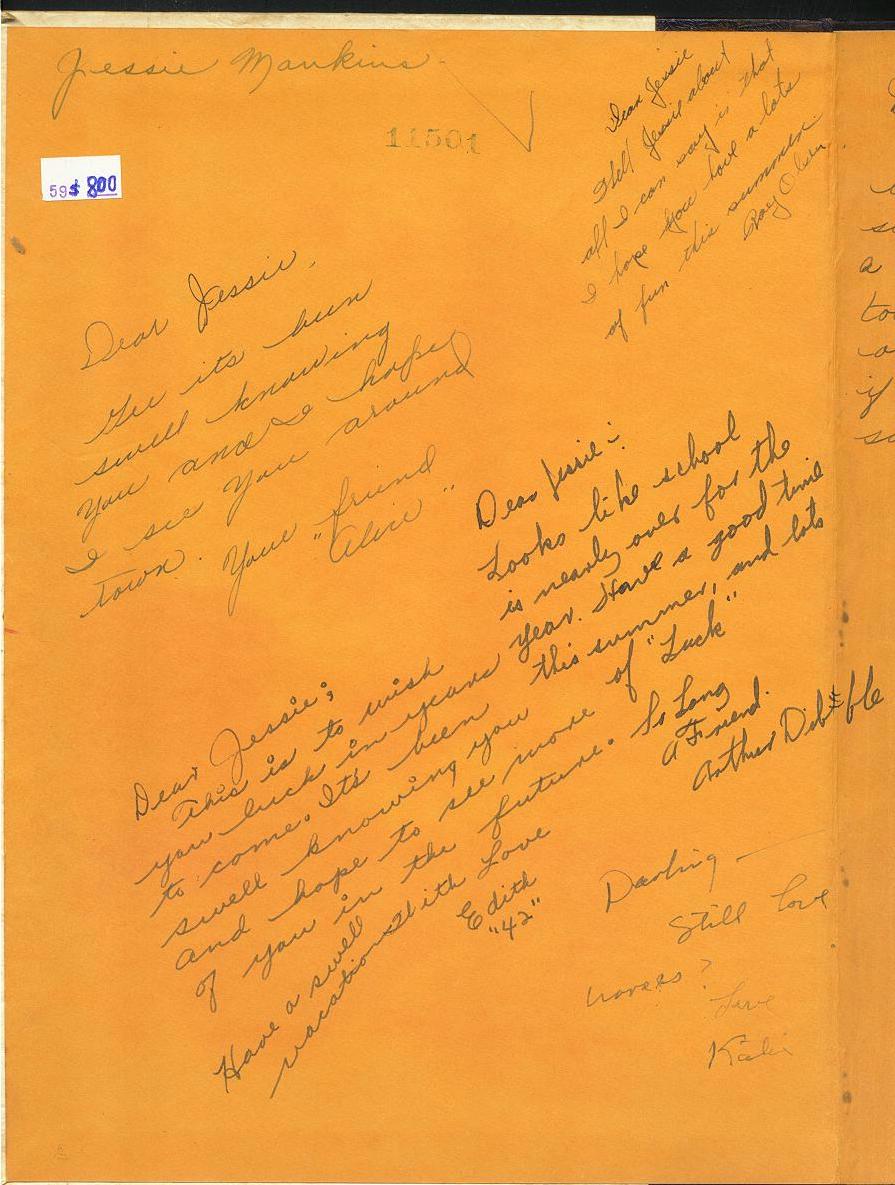 Jessie Mankins
11501
59 $ 8.00
Dear Jessie
Well Jessie about
all I can say is that
I hope you have a lots
of fun this summer.
Ray Olsen
Dear Jessie,
Gee its been
swell knowing
you and I hope
I see you around
town. Your friend
"Alice"
Dear Jessie:-
Looks like school
is nearly over for the
year. Have a good time
this summer, and lots
of "Luck"
So Long
a Friend.
Arthur
Dear Jessie;
This is to wish
you luck in years
to come. It's been
swell knowing you
and hope to see more
of you in the future.
With Love
Edith
"42"
Have a swell
vacation
Darling —
Still love
horses?
Love